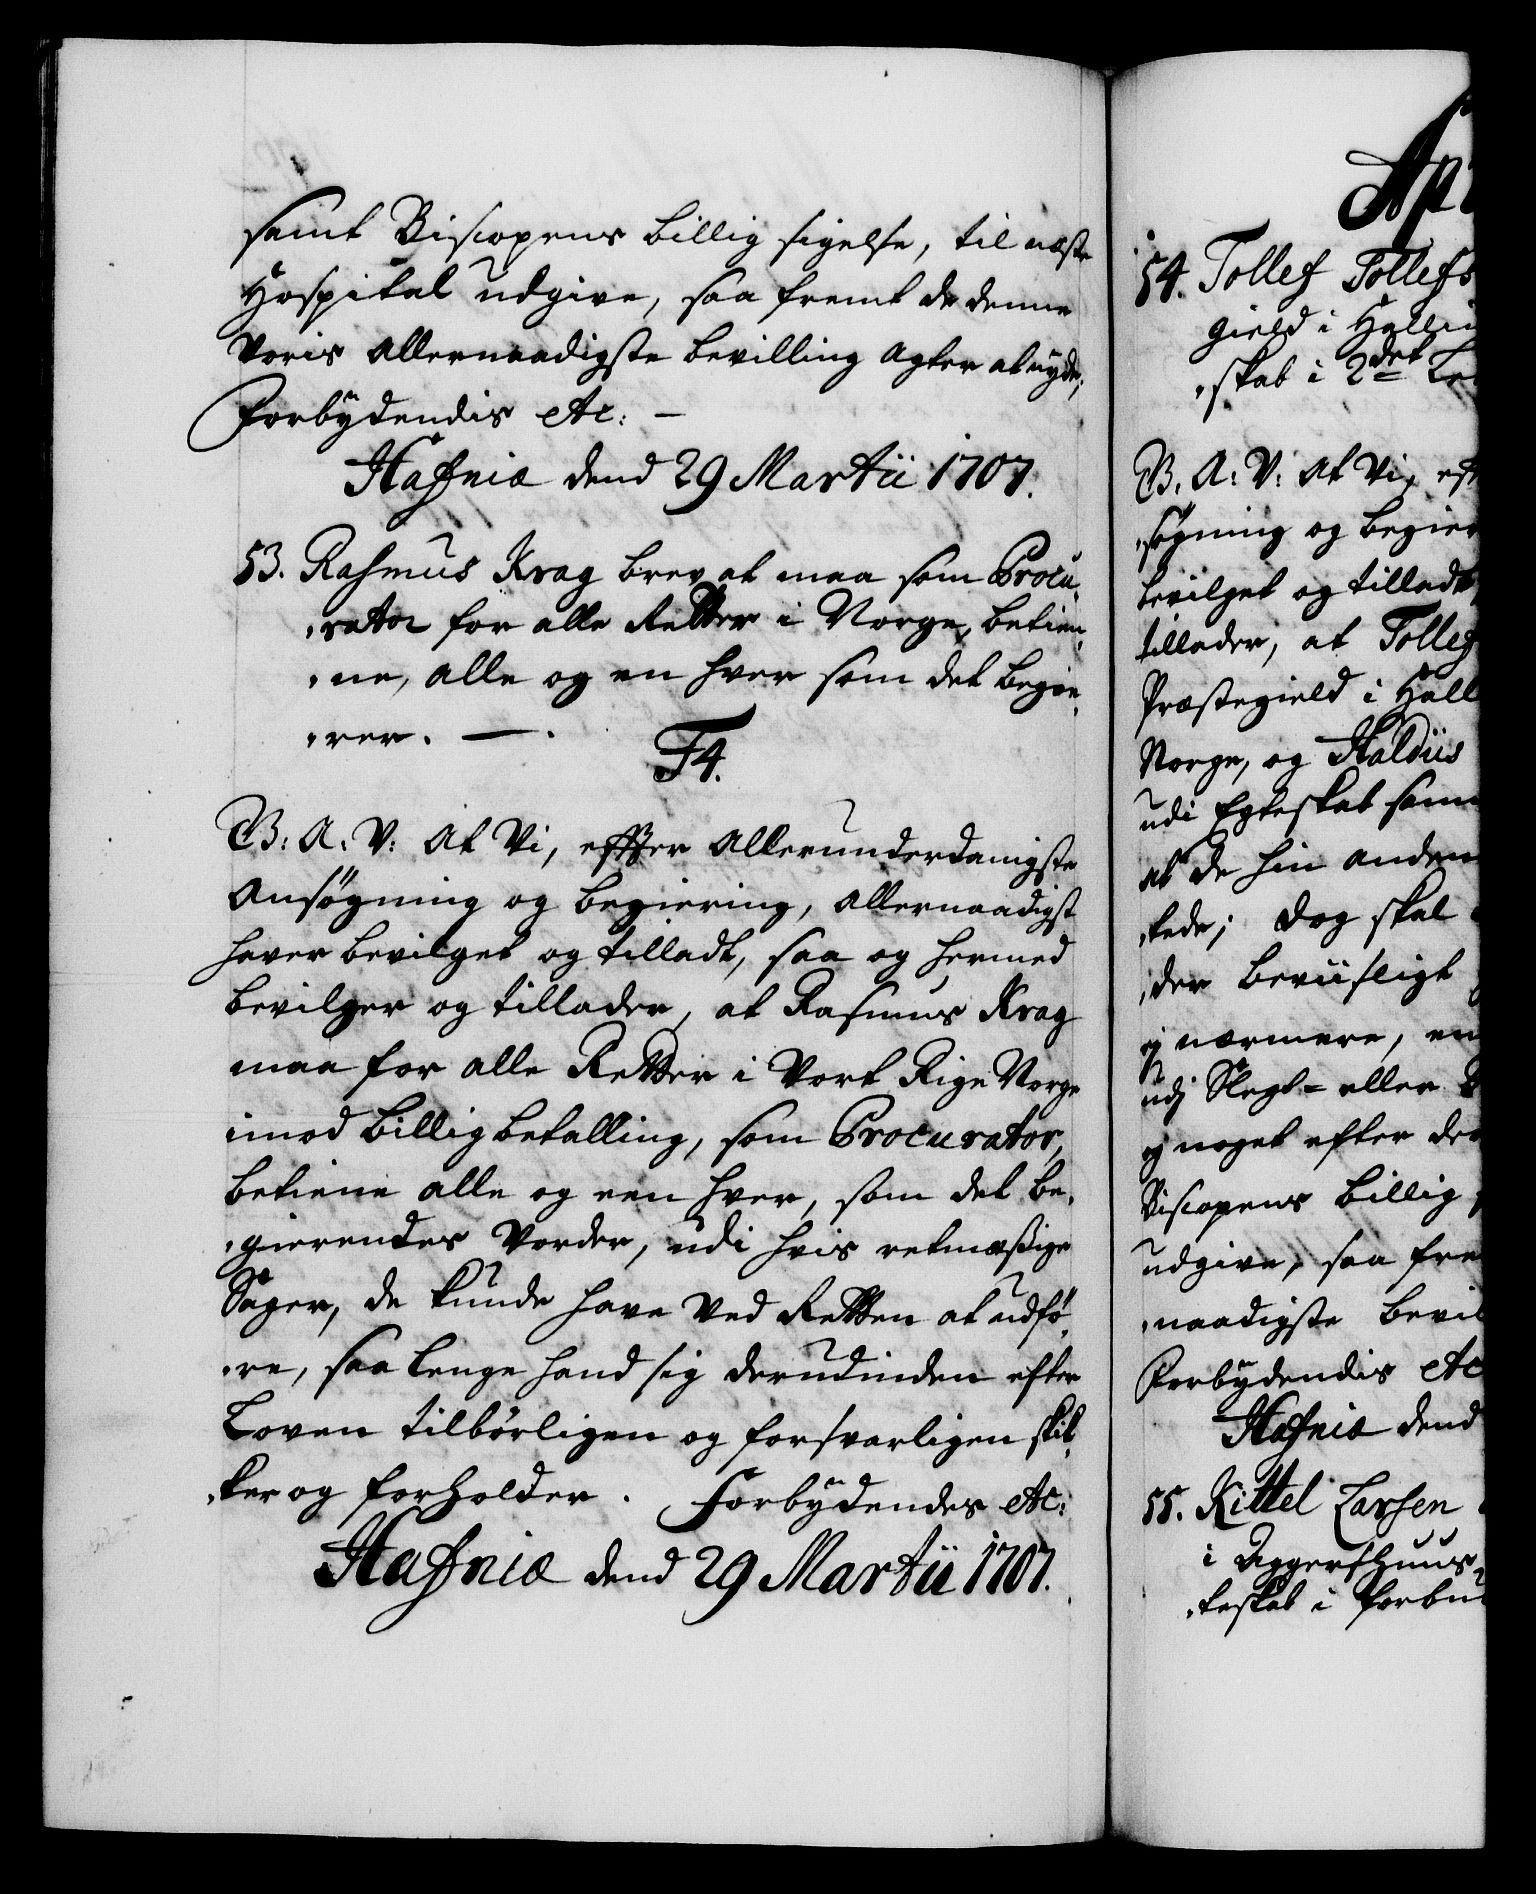 samt Biscopens billig sigelse, til næste
Hospital udgive, saa fremt de denne
Voris allernaadigste bevilling agter at nyde;
Forbydendis etc: –
Hafniæ dend 29 Martii 1707.
53. Rasmus Krag brev at maa som Procu,
,rator for alle Retter i Norge, betien,
,ne, alle og en hver som det begie,
,rer. —.
F4.
B: A: V: At Vi, effter allerunderdanigste
Ansøgning og begiering, allernaadigst
haver bevilget og tilladt, saa og hermed
bevilger og tillader, at Rasmus Krag
maa for alle Retter i Vort Rige Norge
imod billig betalling, som Procurator,
betiene alle og een hver, som det be,
,gierendes vorder, udi hvis retmæssige
Sager, de kunde have ved Retten at udfø,
,re, saa lenge hand sig derudinden efter
Loven tilbørligen og forsvarligen skik,
,ker og forholder. Forbydendes etc:
Hafniæ dend 29 Martii 1707.
Apr
54. Tollef Tollefs
gield i Halli
,skab i 2det Le
B. A: V: At Vi, eff
,søgning og begier
bevilget og tilladt,
tillader, at Tollef
Præstegield i Hall
Norge, og
udi Egteskab sam
at de hin anden
,kede; dog skal
,der beviisligt
ej nærmere, en
udj Slegt- eller
ej noget efter der
Biscopens billig
udgive, saa fre
,naadigste bevil
Forbydendis etc
Hafniæ dend
55. Kittel Larsen
i Aggershuus
,teskab i forbu